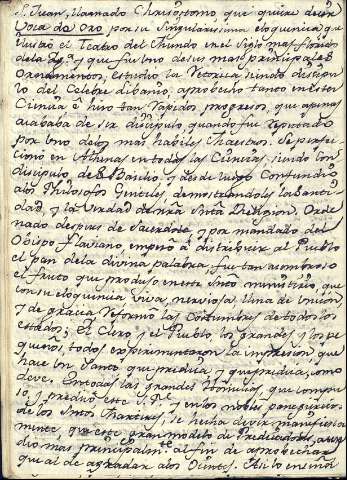 S. Juan, llamado Chrisostomo, que quiere decir
Boca de Oro por su singularissima eloquencia que
ilustró el Teatro del Mundo en el Siglo mas florido
de la Yg.ª y que fue uno de sus mas principales
Ornamentos, estudio la Retorica siendo discipu
lo del Celebre Libanio, aprobechó tanto en esta
Ciencia è hizo tan rapidos progresos, que apenas
acababa de ser discipulo, quando fue reputado
por uno de los mas habiles Maestros. Se perfec
cionó en Athenas en todas las Ciencias, siendo con
discipulo de S. Basilio y desde luego Confundió
a los Philosofos Gentiles, demostrandoles la Santi
dad, y la Verdad de nra Santa Religion. Orde
nado despues de Sacerdote, y por mandado del
Obispo Flaviano, empezó à distribuir al Pueblo
el pan de la divina palabra, fue tan asombroso
el fruto que produjo en este Santo ministerio, que
con su eloquencia viva, nerviosa, llena de Uncion,
y de gracia reformó las costumbres de todos los
estados; El Clero, y el Pueblo, los grandes y los pe
queños, todos experimentaron la impresion que
hace un Santo que predica, y que predica como
deve. En todas las grandes Homilias que compu
so, y predicó este S.to y en los nobles panegiricos
de los Santos Martires, se hecha de ver manifiesta
mente, que este gran modelo de Predicadores, aten
dió mas principalm.te al fin de aprobechar
que al de agradar a los Oientes. Asi lo enseñó